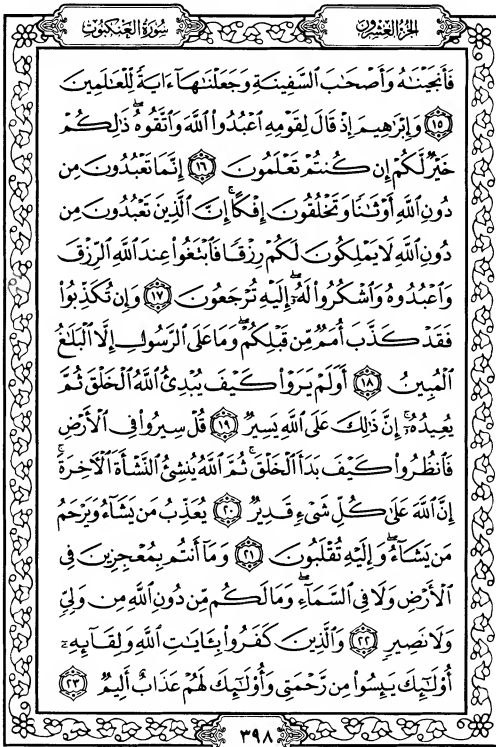 الجزء العشرون
سورة العنكبوت
فَأَنجَيْنَٰهُ وَأَصْحَٰبَ السَّفِينَةِ وَجَعَلْنَٰهَآ ءَايَةً لِّلْعَٰلَمِينَ
﴿١٥﴾ وَإِبْرَٰهِيمَ إِذْ قَالَ لِقَوْمِهِ اعْبُدُوا۟ اللَّهَ وَاتَّقُوهُ ۖ ذَٰلِكُمْ
خَيْرٌ لَّكُمْ إِن كُنتُمْ تَعْلَمُونَ ﴿١٦﴾ إِنَّمَا تَعْبُدُونَ مِن
دُونِ اللَّهِ أَوْثَٰنًا وَتَخْلُقُونَ إِفْكًا ۚ إِنَّ الَّذِينَ تَعْبُدُونَ مِن
دُونِ اللَّهِ لَا يَمْلِكُونَ لَكُمْ رِزْقًا فَابْتَغُوا۟ عِندَ اللَّهِ الرِّزْقَ
وَاعْبُدُوهُ وَاشْكُرُوا۟ لَهُۥٓ ۖ إِلَيْهِ تُرْجَعُونَ ﴿١٧﴾ وَإِن تُكَذِّبُوا۟
فَقَدْ كَذَّبَ أُمَمٌ مِّن قَبْلِكُمْ ۖ وَمَا عَلَى الرَّسُولِ إِلَّا الْبَلَٰغُ
الْمُبِينُ ﴿١٨﴾ أَوَلَمْ يَرَوْا۟ كَيْفَ يُبْدِئُ اللَّهُ الْخَلْقَ ثُمَّ
يُعِيدُهُۥٓ ۚ إِنَّ ذَٰلِكَ عَلَى اللَّهِ يَسِيرٌ ﴿١٩﴾ قُلْ سِيرُوا۟ فِي الْأَرْضِ
فَانظُرُوا۟ كَيْفَ بَدَأَ الْخَلْقَ ۚ ثُمَّ اللَّهُ يُنشِئُ النَّشْأَةَ الْءَاخِرَةَ ۚ
إِنَّ اللَّهَ عَلَىٰ كُلِّ شَىْءٍ قَدِيرٌ ﴿٢٠﴾ يُعَذِّبُ مَن يَشَآءُ وَيَرْحَمُ
مَن يَشَآءُ ۖ وَإِلَيْهِ تُقْلَبُونَ ﴿٢١﴾ وَمَآ أَنتُم بِمُعْجِزِينَ فِي
الْأَرْضِ وَلَا فِي السَّمَآءِ ۖ وَمَا لَكُم مِّن دُونِ اللَّهِ مِن وَلِىٍّ
وَلَا نَصِيرٍ ﴿٢٢﴾ وَالَّذِينَ كَفَرُوا۟ بِـَٔايَٰتِ اللَّهِ وَلِقَآئِهِۦٓ
أُو۟لَٰٓئِكَ يَئِسُوا۟ مِن رَّحْمَتِى وَأُو۟لَٰٓئِكَ لَهُمْ عَذَابٌ أَلِيمٌ ﴿٢٣﴾
٣٩٨